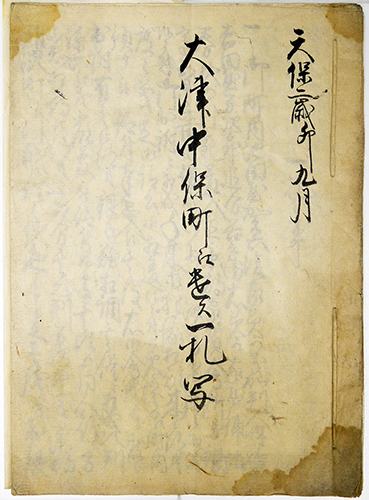 天保二歳卯九月
大津中保町江遣ス一札写